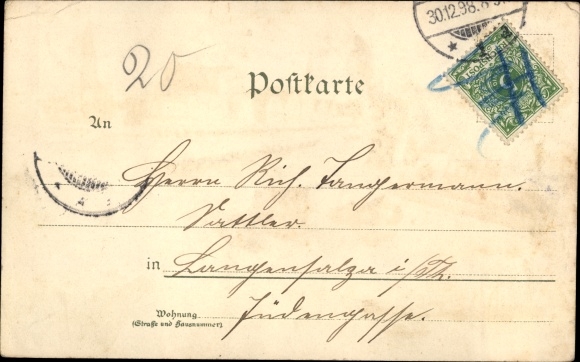 30.12.98.
20
Postkarte
An
Herrn Rich. Tangermann.
Sattler.
in Langensalza i/Th.
Wohnung Jüdengasse.
(Straße und Hausnummer).